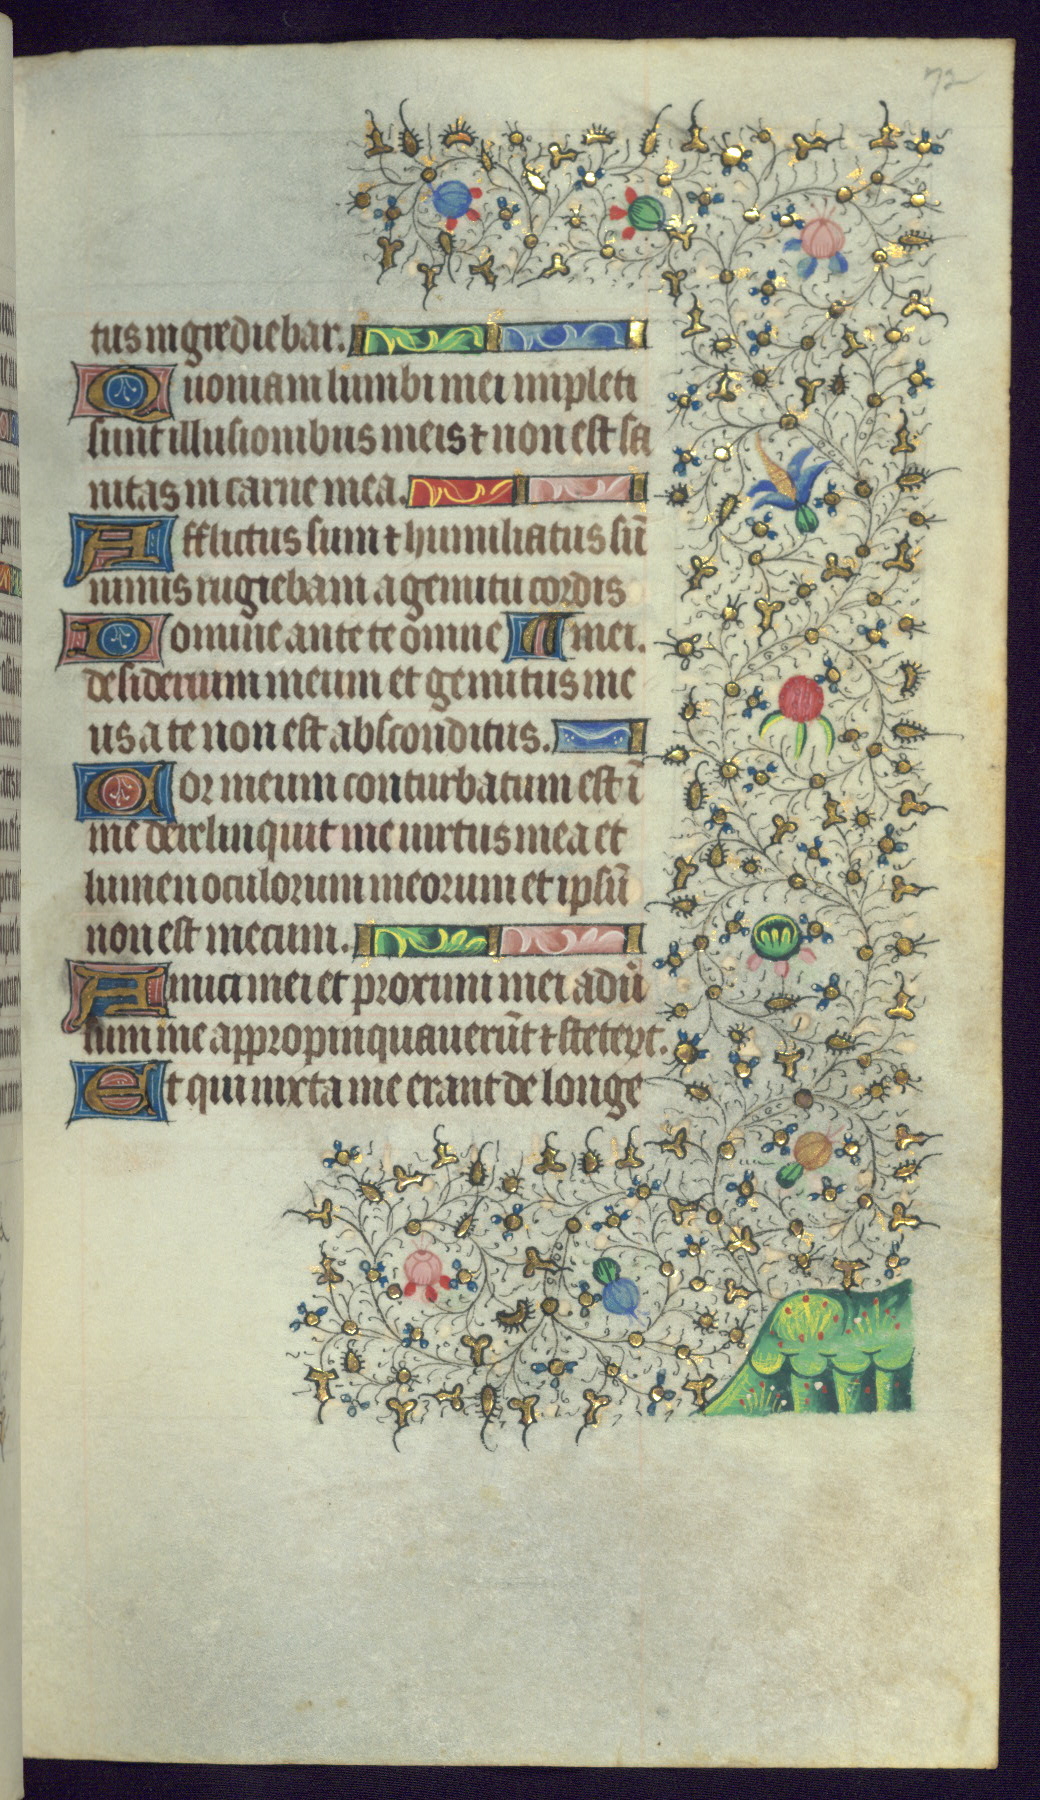 72
tus ingrediebar.
Quoniam lumbi mei impleti
sunt illusionibus meis ⁊ non est sa
nitas in carne mea.
Afflictus sum ⁊ humiliatus sū
nimis rugiebam a gemitu cordis
Domine ante te omne mei.
desiderium meum et gemitus me
us a te non est absconditus.
Cor meum conturbatum est ī
me dereliquit me uirtus mea et
lumen oculorum meorum et ipsū
non est mecum.
Amici mei et proximi mei adū
sum me appropinquauerūt ⁊ steterūt.
Et qui iuxta me erant de longe